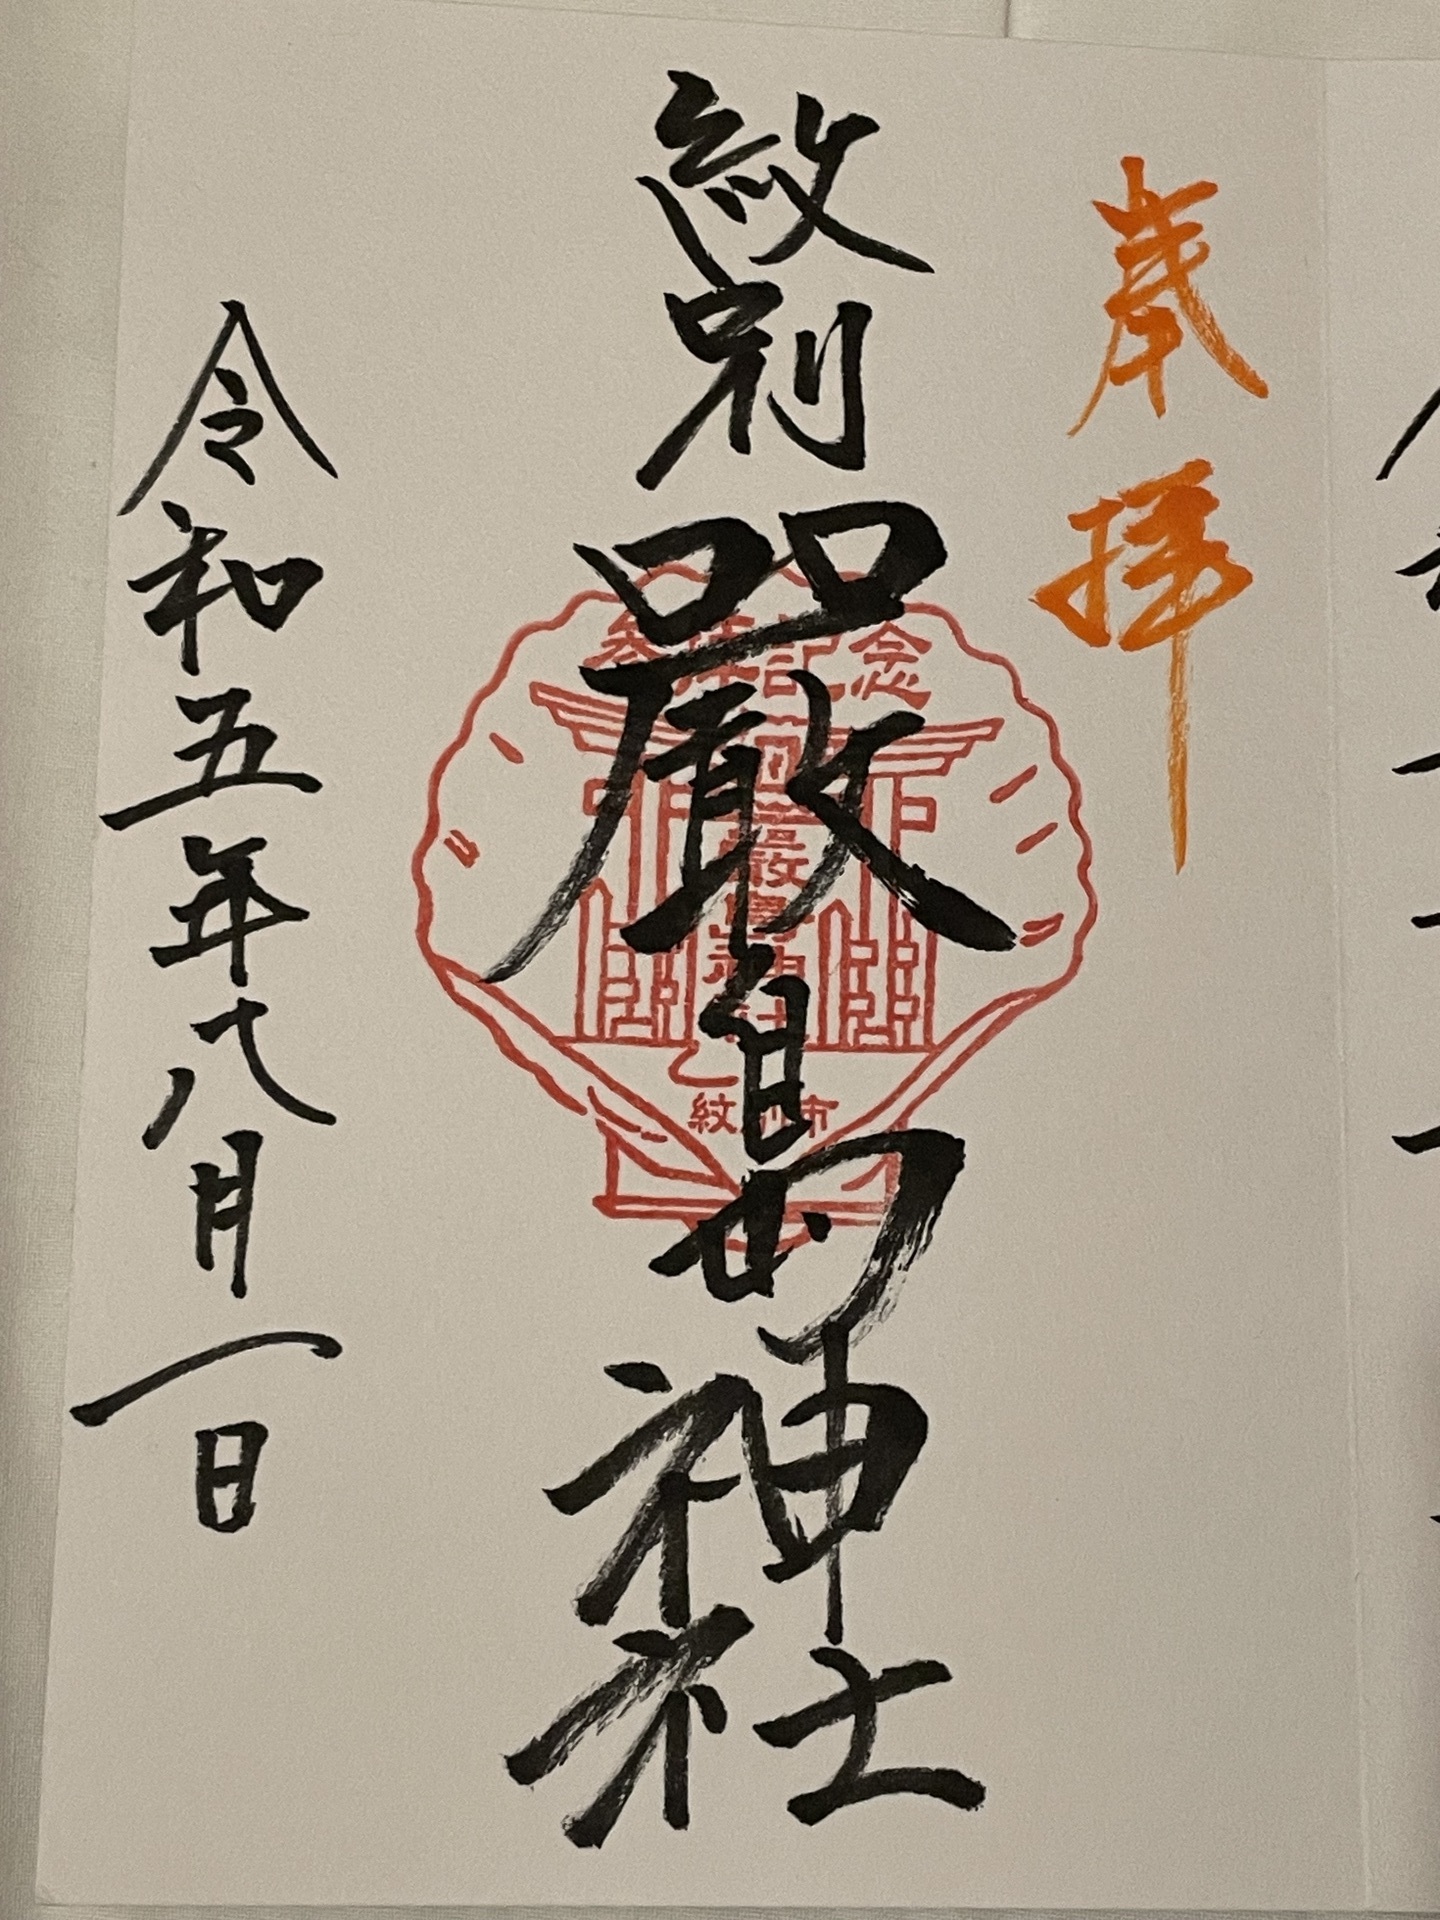 奉拝
紋別厳島神社
参拝記念
厳島神社
紋別市
令和五年八月一日